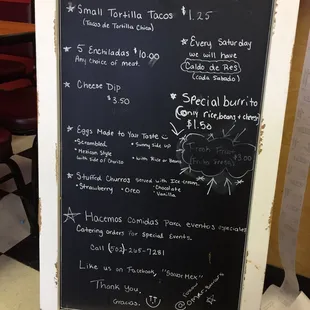 * Small Tortilla Tacos $1.25
(Tacos de Tortilla Chica)
* 5 Enchiladas $10.00
Any choice of meat.
* Every Saturday
we will have
Caldo de Res
(cada Sabado)
* Cheese Dip
$3.50
* Special burrito
(only rice, beans & cheese)
$1.50
* Eggs Made to Your Taste
• Scrambled
• Sunny Side up
• Mexican Style
with Side of Chorizo
• with Rice or Beans
$3.00
* Stuffed Churros served with Ice cream
• Strawberry • Oreo • Chocolate
• Vanilla
Hacemos Comidas para eventos especiales
Catering orders for Special Events.
Call (502)-265-7281
Like us on Facebook, "Sabor Mex"
Thank you,
Gracias.